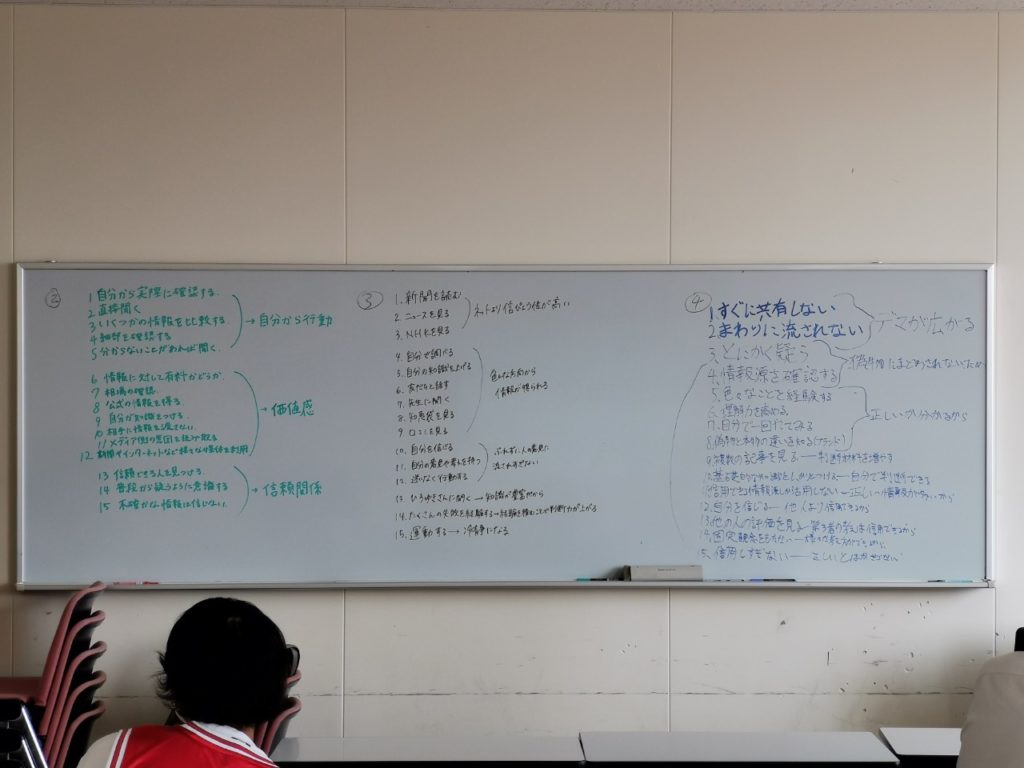 ②
1 自分から実際に確認する.
2 直接聞く
3 いくつかの情報を比較する.
4 細部を確認する
5 分からないことがあれば聞く.
→自分から行動
6 情報に対して有料かどうか.
7 相場の確認.
8 公式の情報を得る.
9 自分が知識をつける.
10 相手に情報を渡さない.
11 メディア側の意図を読み取る
12 新聞やインターネットなど様々な媒体を利用
→価値感
13 信頼できる人を見つける.
14 普段から疑うように意識する
15 不確かな情報は信じない.
→信頼関係
③
1. 新聞を読む
2. ニュースを見る
3. NHKを見る
ネットより信ぴょう性が高い
4. 自分で調べる
5. 自分の知識を上げる
6. 友だちと話す
7. 先生に聞く
8. 知恵袋を見る
9. 口コミを見る
色んな方向から
情報が得られる
10. 自分を信じる
11. 自分の意見や考えを持つ
12. 迷いなく行動する
ぶれずに人の意見に
流されずない
13. ひろゆきさんに聞く→知識が豊富だから
14. たくさんの失敗を経験する→経験を積むことが判断力が上がる
15. 運動する→冷静になる
④
1.すぐに共有しない
2.まわりに流されない
デマが広がる
3.とにかく疑う
4.情報源を確認する
5.色々なことを経験する
6.理解力を高める.
7.自分で一回してみる
8.偽物と本物の違いを知る(ブランド)
正しいか分かるから
9.複数の記事を見る―判断材料を増やす
自分で判断できる
12.自分を信じる―他人より信用できるから
13.他の人の評価を見る―第3者の
15.信用しすぎない―正しいとは